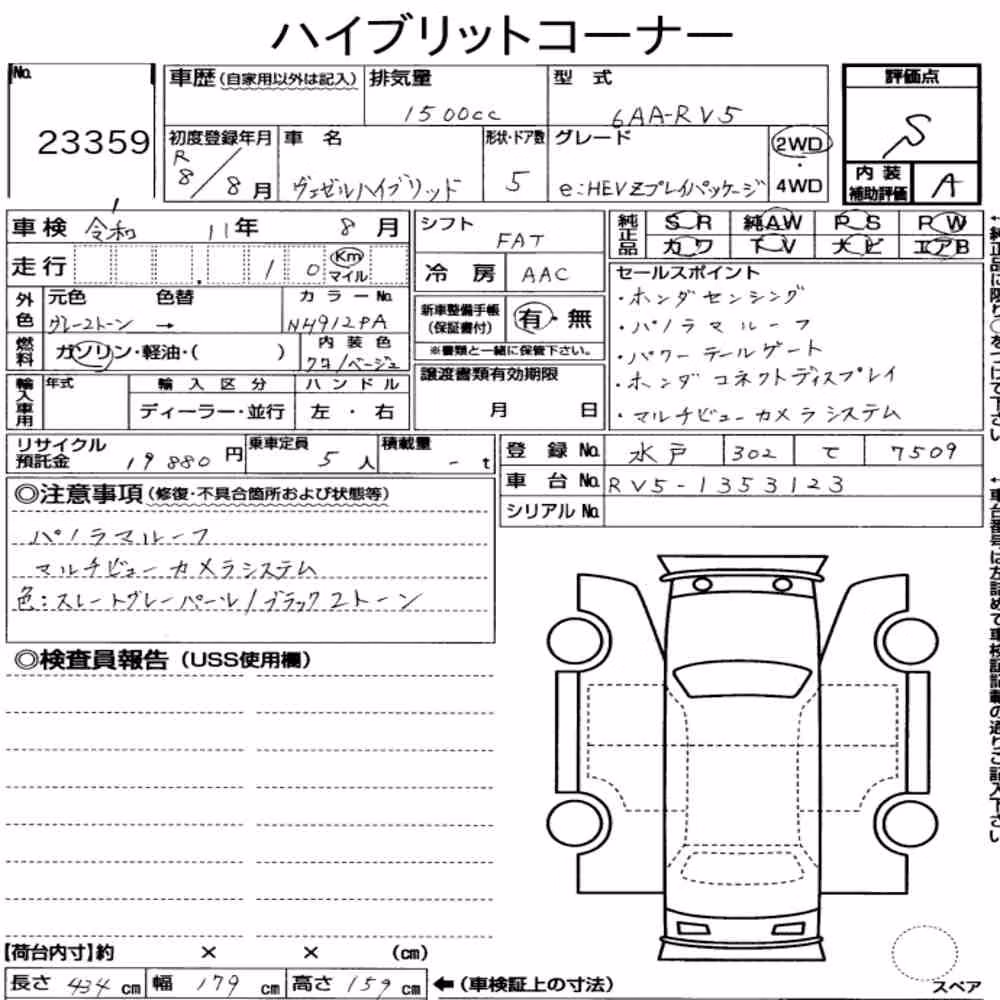 ハイブリットコーナー
No. 23359
車歴(自家用以外は記入)
排気量 1500cc
型 式 6AA-RV5
評価点 S
内装補助評価 A
初度登録年月 R8/8月
車 名 ヴェゼルハイブリッド
形状・ドア数 5
グレード e:HEVZプレイパッケージ
2WD・4WD
車検 令和 11年 8月
シフト FAT
純正品 SR 純AW PS PW
カワ TV ナビ エアB
走行 10 Km マイル
冷房 AAC
セールスポイント
・ホンダセンシング
・パノラマルーフ
・パワーテールゲート
・ホンダコネクトディスプレイ
・マルチビューカメラシステム
外色 元色 色替 カラーNo.
グレー2トーン → NH912PA
新車整備手帳(保証書付) 有・無
※書類と一緒に保管下さい。
燃料 ガソリン・軽油・( )
内装色 クロ/ベージュ
輸入車用 年式 輸入区分 ハンドル
ディーラー・並行 左・右
譲渡書類有効期限
月 日
リサイクル預託金 19880円
乗車定員 5人
積載量 - t
登録No. 水戸 302 て 7509
車台No. RV5-1353123
シリアルNo.
◎注意事項(修復・不具合箇所および状態等)
パノラマルーフ
マルチビューカメラシステム
色:スレートグレーパール/ブラック2トーン
◎検査員報告(USS使用欄)
【荷台内寸】約 × × (cm)
長さ 434cm 幅 179cm 高さ 159cm ←(車検証上の寸法)
スペア